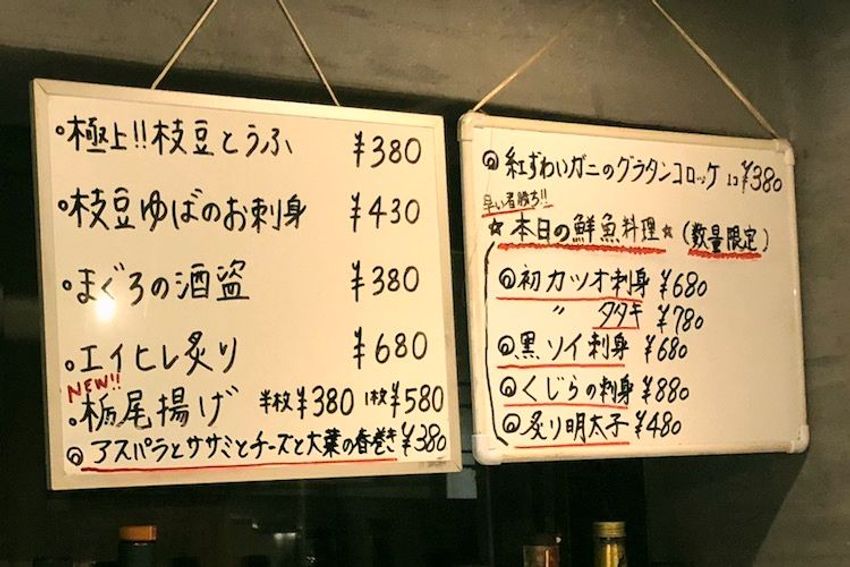 ・極上!!枝豆とうふ ¥380
・枝豆ゆばのお刺身 ¥430
・まぐろの酒盗 ¥380
・エイヒレ炙り ¥680
NEW!!
・栃尾揚げ 半枚¥380 1枚¥580
◎アスパラとササミとチーズと大葉の春巻き ¥380
◎紅ずわいガニのグラタンコロッケ 1コ ¥380
早い者勝ち!!
☆本日の鮮魚料理☆(数量限定)
◎初カツオ刺身 ¥680
〃 タタキ ¥780
◎黒ソイ刺身 ¥680
◎くじらの刺身 ¥880
◎炙り明太子 ¥480